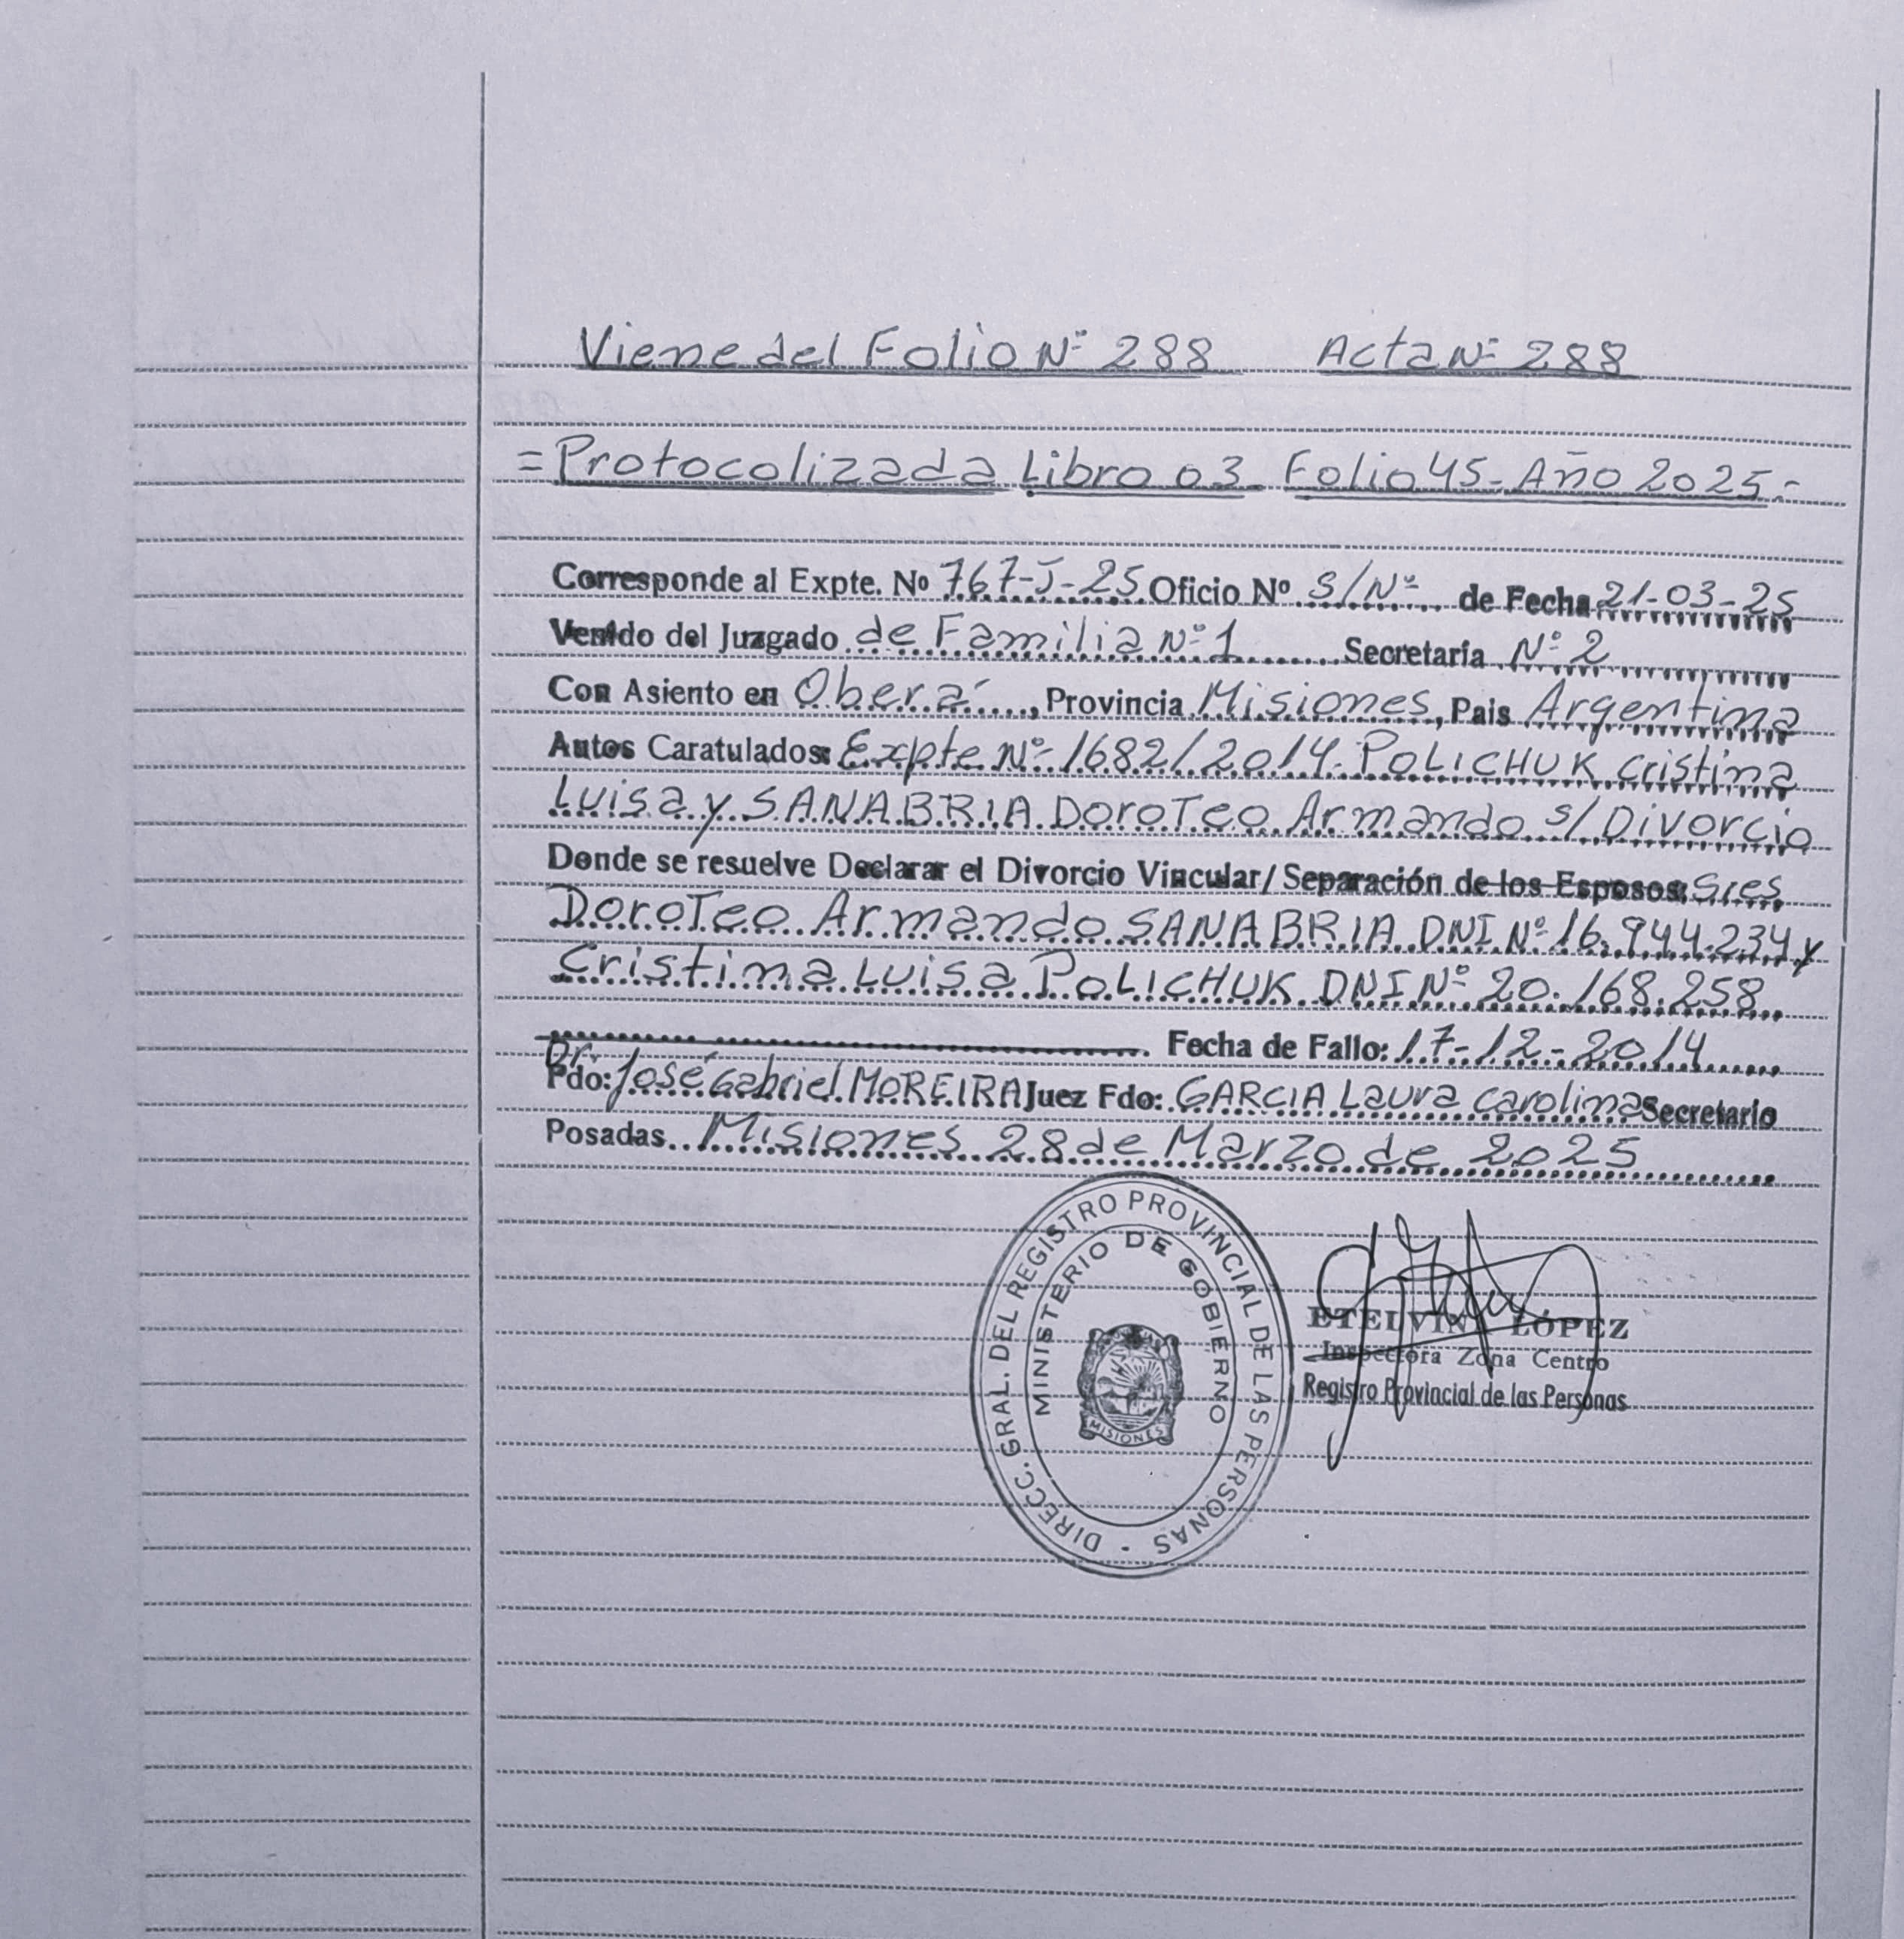 Viene del Folio Nº 288 Acta Nº 288
=Protocolizada Libro 03- Folio 45- Año 2025.-
Corresponde al Expte. Nº 767-J-25 Oficio Nº S/Nº de Fecha 21-03-25
Venido del Juzgado de Familia Nº 1 Secretaría Nº 2
Con Asiento en Oberá, Provincia Misiones, Pais Argentina
Autos Caratulados: Expte Nº 1682/2014. POLICHUK Cristina
Luisa y SANABRIA Doroteo Armando s/ Divorcio
Donde se resuelve Declarar el Divorcio Vincular/ Separación de los Esposos: Sres
Doroteo Armando SANABRIA DNI Nº 16.944.234 y
Cristina Luisa POLICHUK DNI Nº 20.168.258
Fecha de Fallo: 17-12-2014
Dr.
Fdo: José Gabriel MOREIRA Juez Fdo: GARCIA Laura Carolina Secretario
Posadas Misiones 28 de Marzo de 2025
DIRECC. GRAL. DEL REGISTRO PROVINCIAL DE LAS PERSONAS -
MINISTERIO DE GOBIERNO
MISIONES
ETELVINA LÓPEZ
Inspectora Zona Centro
Registro Provincial de las Personas